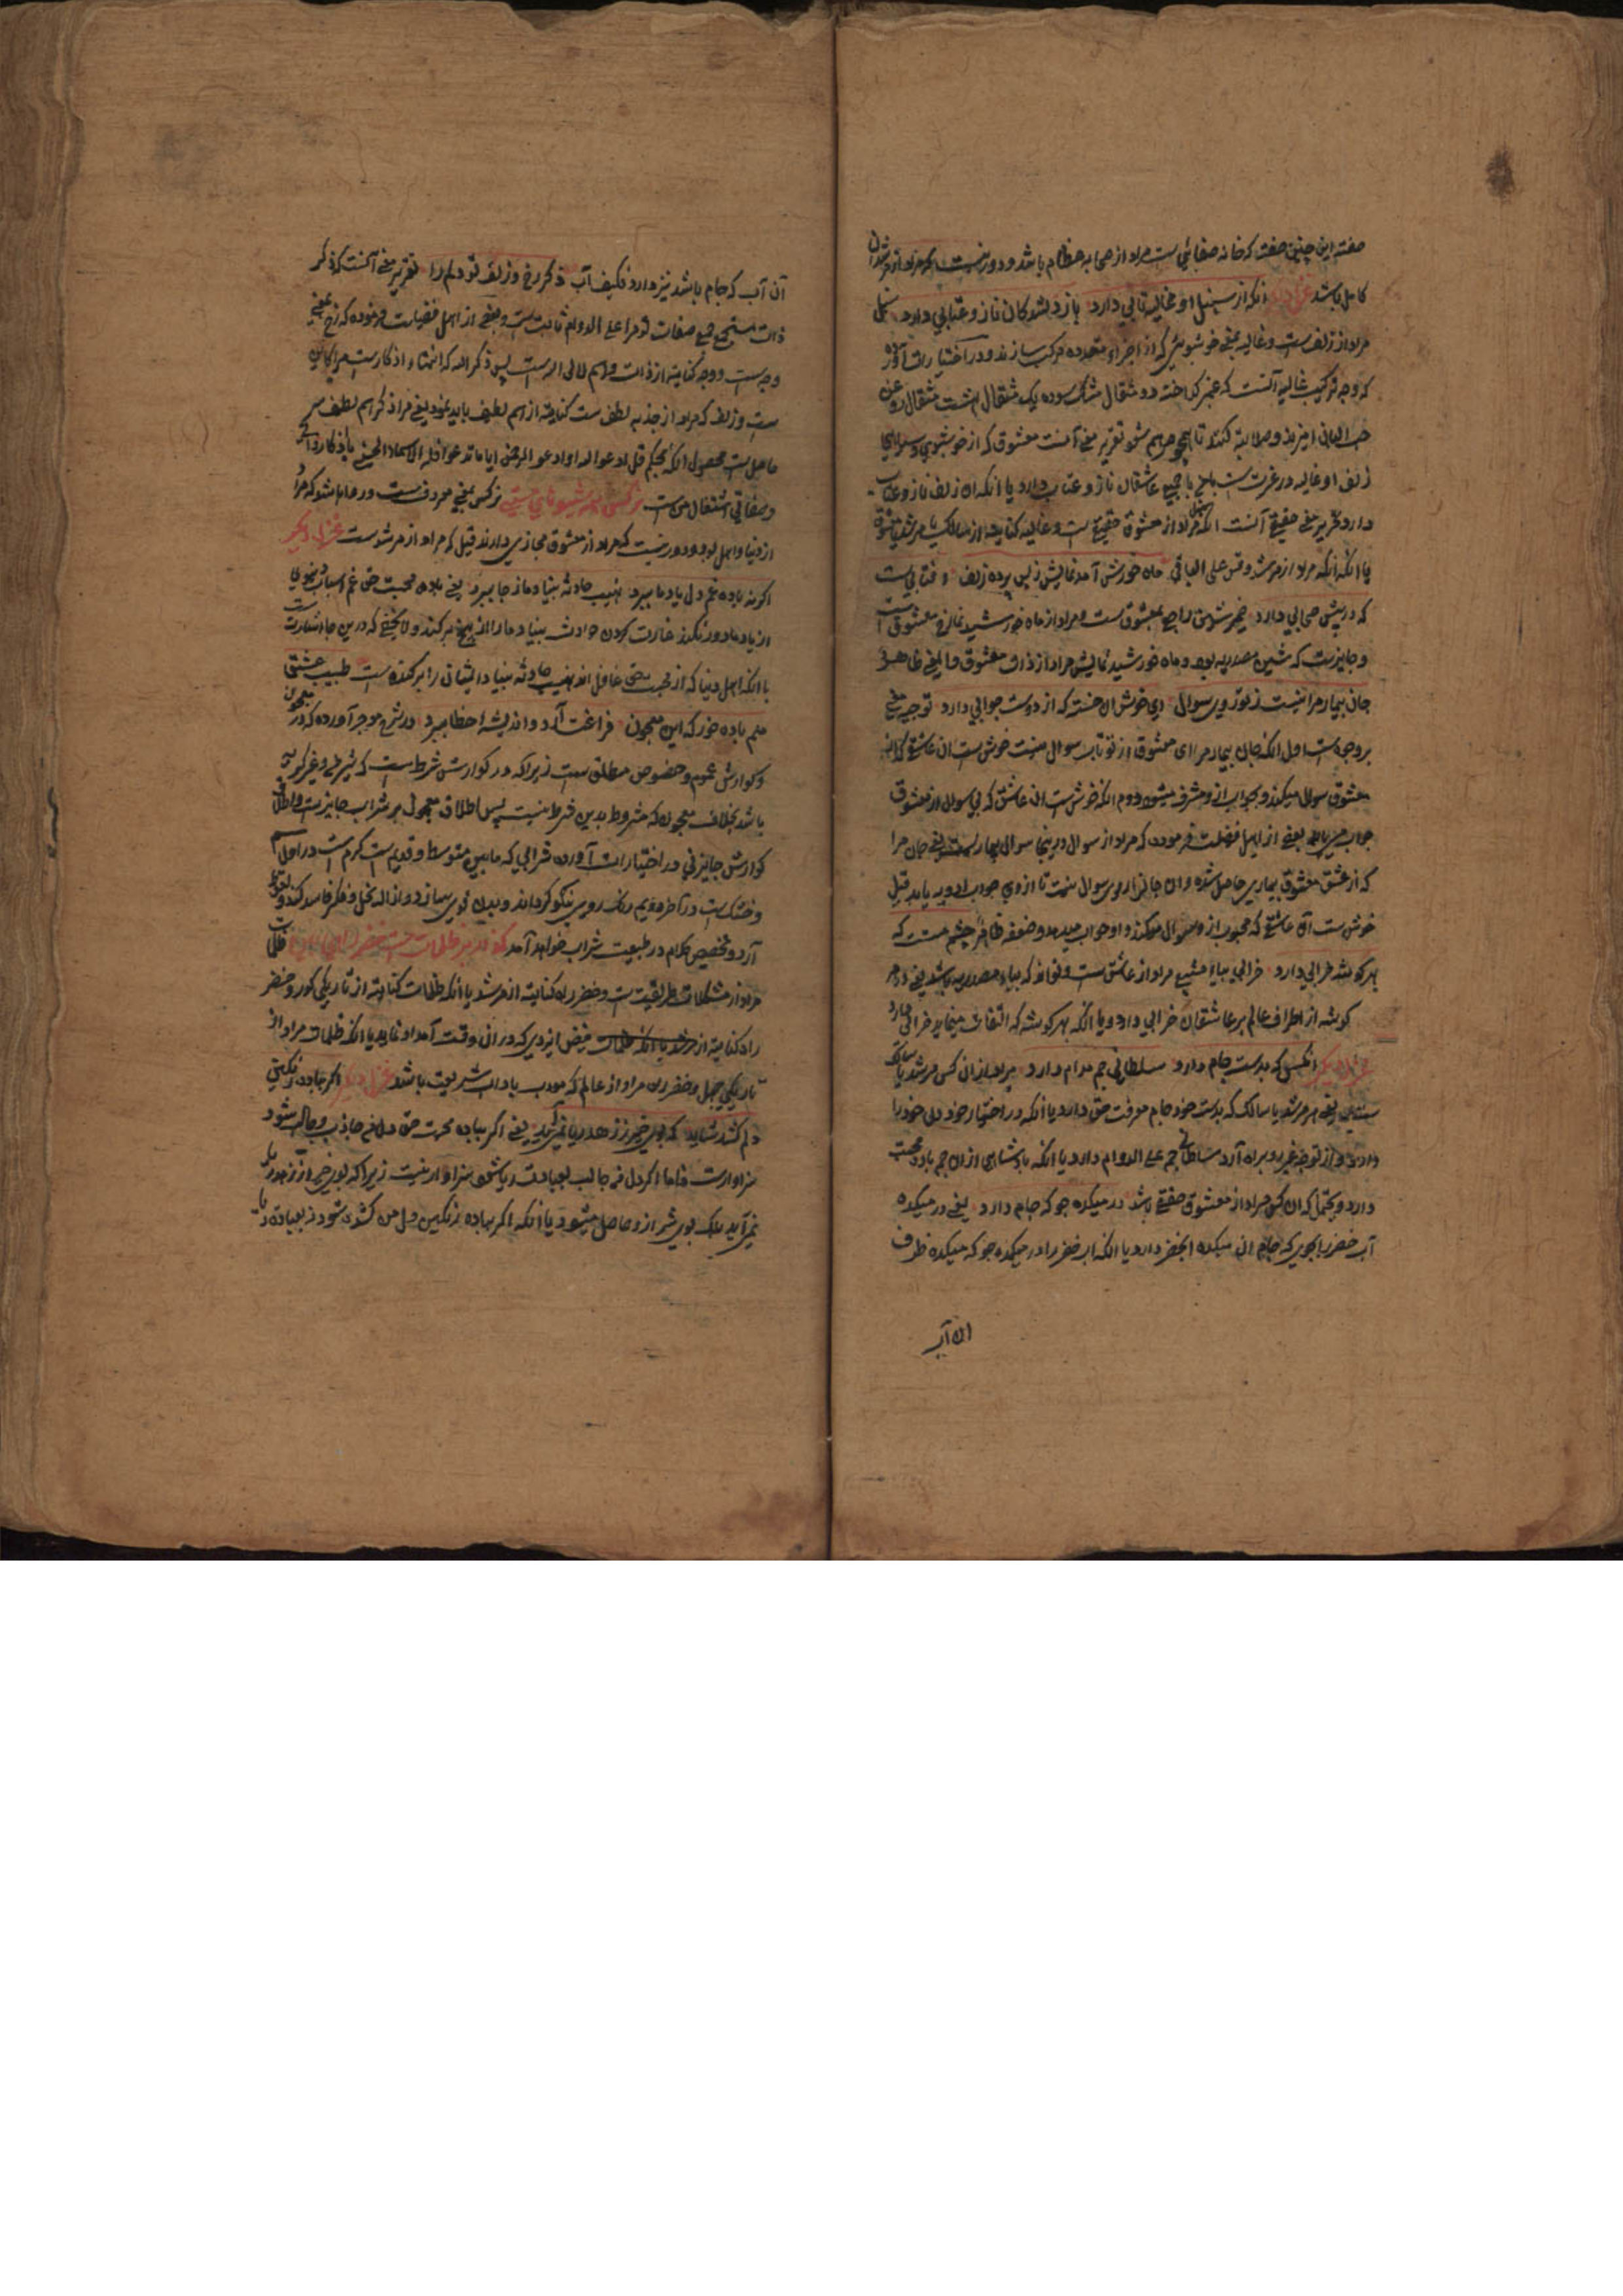 صفته این چنین صفته که خانه صفائی ست مراد از صحابه عظام باشد و دور نیست که مراد از مرشدان
کامل باشد غزل دیگر آنکه از سنبل او غالیه تابی دارد باز با دلشدگان ناز و عتابی دارد سنبل
مراد از زلف ست و غالیه بمعنی خوشبوئی که از اجزاء متعدده مرکب سازند و در اختیارات آورده
که وجه ترکیب غالیه آنست که عنبر گداخته دو مثقال مشک سوده یک مثقال هشت مثقال روغن
حب البان آمیزند و صلابه کنند تا همچو مرهم شود تقریر معنی آنست معشوق که از خوشبوی و سیاهی
زلف او غالیه در غیرت ست با جمیع عاشقان ناز و عتاب دارد یا آنکه آن زلف ناز و عتاب
دارد تقریر معنی حقیقی آنست آنکه مراد از معشوق حقیقی ست و غالیه کنایه از سالک یا مرشد یا معشوق
یا آنکه آنکه مراد از مرشد و قس علی الباقی ماه خورشید نمایش ز پس پرده زلف آفتابی ست
که در پیش سحابی دارد ضمیر شین راجع بمعشوق ست و مراد از ماه خورشید نما رخ معشوق است
و جایز ست که شین مصدریه بود و ماه خورشید نمایش مراد از ذات معشوق و المعنی ظاهر
جان بیمار مرا نیست ز تو روی سوال ای خوش آن خسته که از دوست جوابی دارد توجیه معنی
بر وجوه ست اول آنکه جان بیمار مرا ای معشوق از تو تاب سوال نیست خوش ست آن عاشق که از
معشوق سوال میکند و بجواب از و مشرف میشود دوم آنکه خوش ست آن عاشق که بی سوال از معشوق
جواب می یابد بعضی از اهل فضیلت فرموده که مراد از سوال درینجا سوال بیمار ست یعنی جان مرا
که از عشق معشوق بیماری حاصل شده و آن جانرا روی سوال نیست تا از وی جواب ادویه یابد قیل
خوش ست آن عاشق که محبوب از و سوال میکند و او جواب میدهد و ضعفه ظاهر چشم مست که
بهر گوشه خرابی دارد خرابی بیاء مراد از عاشق ست و تواند که بیاء مصدریه باشد یعنی در هر
گوشه از اطراف عالم بر عاشقان خرابی دارد و یا آنکه بهر گوشه که التفات مینماید خرابی دارد
غزل دیگر آنکس که بدست جام دارد سلطانی جم مدام دارد مراد از آن کس مرشد یا سالک
ست یعنی هر مرشد یا سالک که بدست خود جام معرفت حق دارد یا آنکه در اختیار خود دل خود را
دارد و از توجه غیر رو براه آرد سلطانی جم علی الدوام دارد یا آنکه پادشاهی از آن جم باده محبت
دارد و یحتمل که آن کس مراد از معشوق حقیقی باشد در میکده جو که جام دارد یعنی در میکده
آب خضر را بجوی که جام آن میکده آب خضر دارد یا آنکه آب خضر را در میکده جو که میکده ظرف
آن آب
آن آب که جام باشد نیز دارد فکیف آب ذکر رخ و زلف تو دلم را تقریر معنی آنست که ذکر
ذات مستجمع جمیع صفات تو مرا علی الدوام ثابت ست و بعضی از اهل فضیلت فرموده که رخ بمعنی
وجه ست و وجه کنایه از ذات و اسم دال ست پس ذکر الله که انتهاء اذکار ست مرا کافی
ست و زلف که مراد از جذبه لطف ست کنایه از اسم لطیف باید نمود یعنی مرا ذکر اسم لطیف
حاصل ست محصول آنکه بحکم قل ادعوا الله او ادعوا الرحمن ایا ما تدعوا فله الاسماء الحسنی باذکار ذاتی
و صفاتی اشتغال من ست نرگس همه شیوهای مستی نرگس بمعنی معروف ست
از دنیا و اهل او بود و دور نیست که مراد از معشوق مجازی دارند قیل که مراد از مرشد ست غزل دیگر
اگر نه باده غم دل ز یاد ما ببرد نهیب حادثه بنیاد ما ز جا ببرد یعنی باده محبت حق غم اسباب دنیوی
از یاد ما دور نکند غارت کردن حوادث بنیاد ما را از بیخ برکند و لا یخفی که درین جا اشارت ست
با آنکه اهل دنیا که از محبت حق غافل اند نهیب حادثه بنیاد ایشان را بر کنده ست طبیب عشق
منم باده خور که این معجون فراغت آرد و اندیشه خطا ببرد در شرح موجز آورده که در معجون
و گوارش عموم و خصوص مطلق ست زیرا که در گوارش شرط ست که
باشد بخلاف معجون که مشروط بدین شرط نیست پس اطلاق معجون بر شراب جایز ست و اطلاق
گوارش جایز نی در اختیارات آورده شرابی که مابین متوسط و قدیم ست گرم ست در اول
و خشک ست در آخر دویم رنگ روی نیکو گرداند و بدن قوی سازد و ازاله بخل و فکر فاسد کند و
آرد و تخصیص کلام در طبیعت شراب خواهد آمد گذار بر ظلمات ست خضر راهی کو ظلمات
مراد از مشکلات طریقت ست و خضر راه کنایه از مرشد یا آنکه ظلمات کنایه از تاریکی گور و خضر
راه کنایه از فیض ایزدی که در آن وقت آمد او نماید یا آنکه ظلمات مراد از
تاریکی جهل و خضر راه مراد از عالم که مودب باداب شریعت باشد غزل دیگر اگر بباده رنگین
دلم کشد شاید که بوی خیر ز زهد ریا نمی آید یعنی اگر بباده محبت حق دل من جاذب و مائل شود
سزاوار ست فاما اگر دل من جالب بعبادت ریا شود سزاوار نیست زیرا که بوی خیر از زهد ریا
نمی آید بلکه بوی شر ازو حاصل میشود یا آنکه اگر بباده رنگین دل من کشد شود نه بعبادة ریا